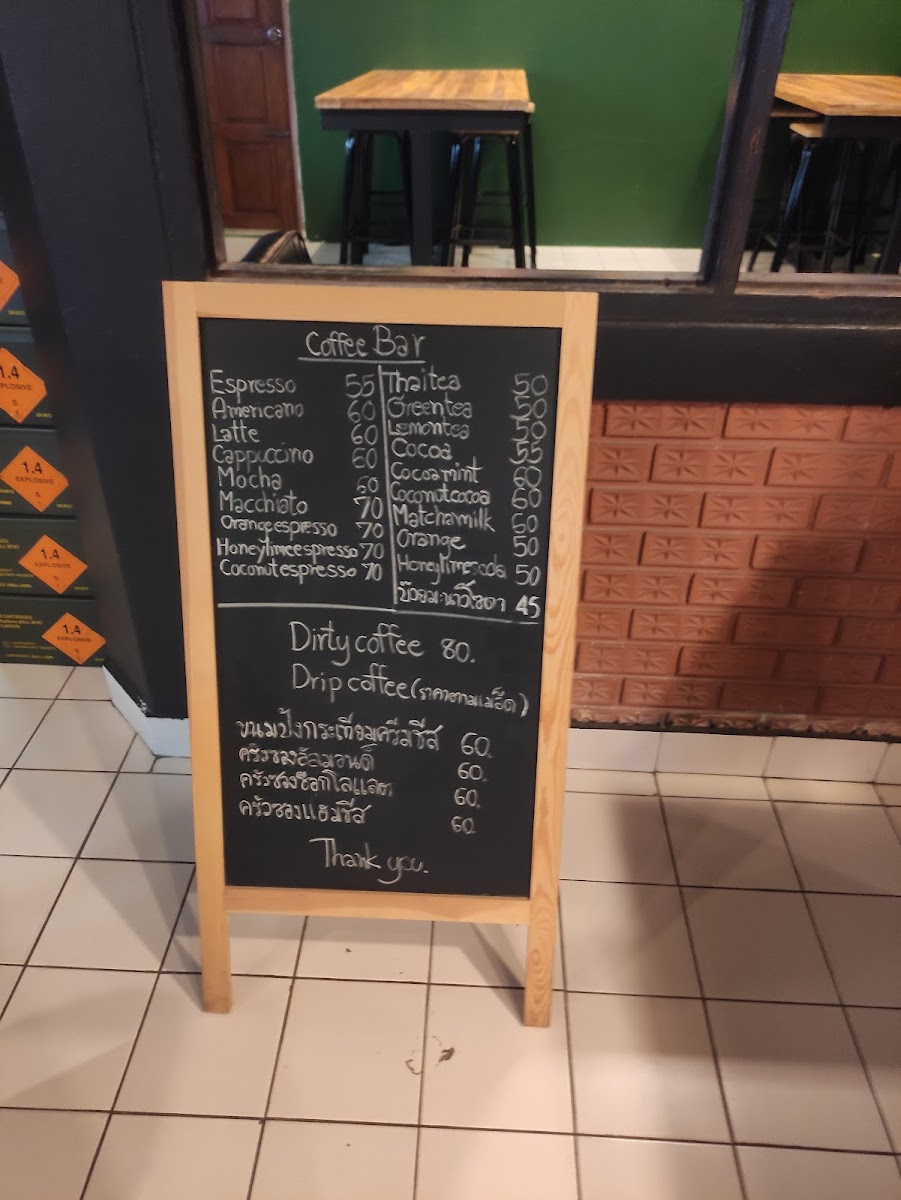 Coffee Bar
Espresso 55
Americano 60
Latte 60
Cappuccino 60
Mocha 60
Macchiato 70
Orange espresso 70
Honeylime espresso 70
Coconut espresso 70
Thai tea 50
Green tea 50
Lemon tea 50
Cocoa 55
Cocoa mint 60
Coconut cocoa 60
Matcha milk 60
Orange 50
Honeylime soda 50
บ๊วยมะนาวโซดา 45
Dirty coffee 80.
Drip coffee (ราคาตามเมล็ด)
ขนมปังกระเทียมครีมชีส 60.
ครัวซองอัลมอนด์ 60.
ครัวซองช็อกโกแลต 60.
ครัวซองแฮมชีส 60.
Thank you.
1.4
PLOSIVE
S
1.4
EXPLOSIVE
S
1.4
EXPLOSIVE
S
1.4
EXPLOSIVE
S